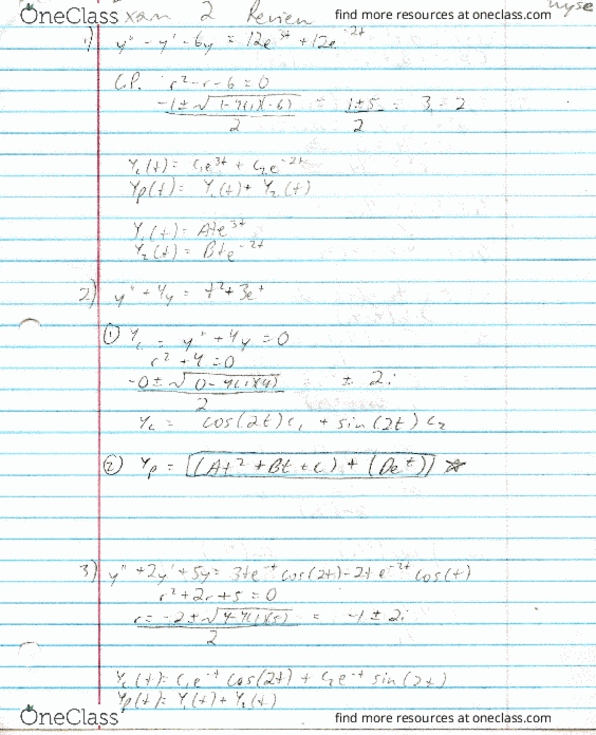 OneClass xam 2 Review find more resources at oneclass.com
1) y" - y' - 6y = 12e^3t + 12e^-2t
C.P. r² - r - 6 = 0
-1 ± √(1-4(1)(-6) = 1±5 = 3, -2
2 2
Yc(t) = c1e^3t + c2e^-2t
Yp(t) = Y1(t) + Y2(t)
Y1(t) = Ate^3t
Y2(t) = Bte^-2t
2) y" + 4y = t² + 3e^t
① Yc = y" + 4y = 0
r² + 4 = 0
-0 ± √(0-4(1)(4) ± 2i
2
Yc = cos(2t)c1 + sin(2t)c2
② Yp = (At² + Bt + C) + (De^t)
3) y" + 2y' + 5y = 3te^-t cos(2t) - 2te^-2t cos(t)
r² + 2r + 5 = 0
r = -2 ± √(4-4(1)(5) = -1 ± 2i
2
Yc(t) = c1e^-t cos(2t) + c2e^-t sin(2t)
Yp(t) = Y1(t) + Y2(t)
OneClass find more resources at oneclass.com